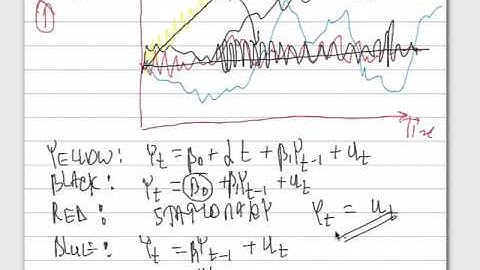 ①
Time
YELLOW: Yt = β0 + αt + β1Yt-1 + ut
BLACK: Yt = β0 + β1Yt-1 + ut
RED: STATIONARY Yt = ut
BLUE: Yt = βYt-1 + ut